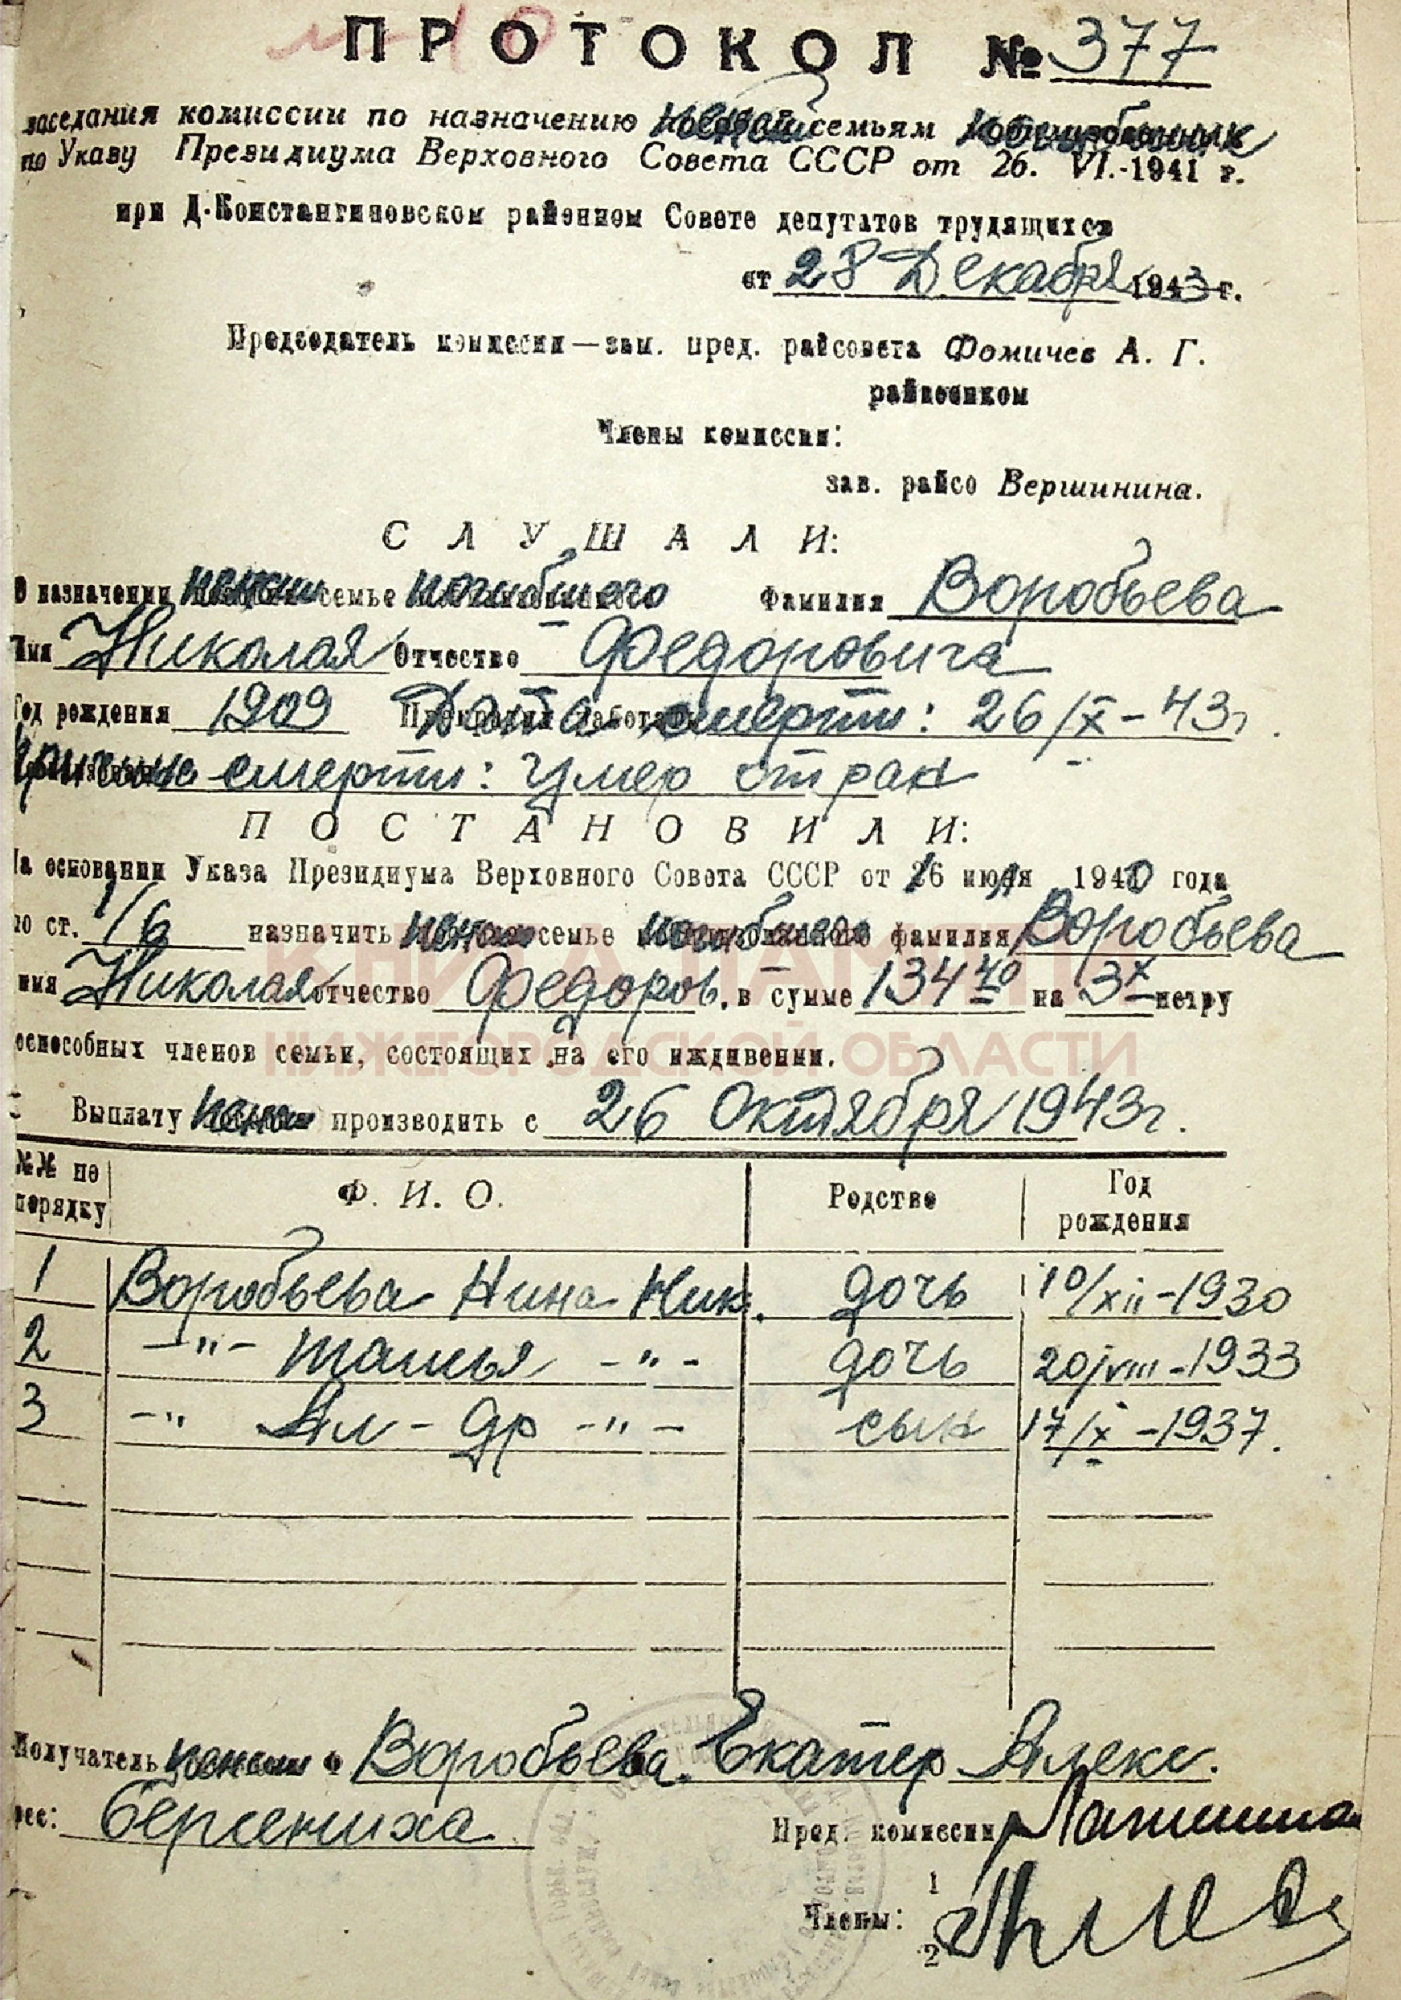 ПРОТОКОЛ № 377
заседания комиссии по назначению пенсий семьям погибших
по Указу Президиума Верховного Совета СССР от 26. VI.-1941 г.
при Д-Константиновском районном Совете депутатов трудящихся
от 28 Декабря 1943 г.
Председатель комиссии—зам. пред. райсовета Фомичев А. Г.
райвоенком
Члены комиссии:
зав. райсо Вершинина.
СЛУШАЛИ:
О назначении пенсии семье погибшего Фамилия Воробьева
Имя Николая Отчество Федоровича
Год рождения 1909 Дата смерти: 26/X-43г.
Причина смерти: умер от ран
ПОСТАНОВИЛИ:
На основании Указа Президиума Верховного Совета СССР от 16 июля 1940 года
по ст. 1/6 назначить пенсию семье погибшего фамилия Воробьева
имя Николая отчество Федоров. в сумме 134 40 на 3х нетру
оспособных членов семьи, состоящих на его иждивении.
КНИГА ПАМЯТИ
НИЖЕГОРОДСКОЙ ОБЛАСТИ
Выплату пенсии производить с 26 Октября 1943г.
№№ по порядку Ф. И. О. Родство Год рождения
1 Воробьева Нина Ник. дочь 10/XII-1930
2 -"- Тамья -"- дочь 20/VIII-1933
3 -" Ал-др -"- сын 17/X-1937.
Получатель пенсии Воробьева Екатер Алекс.
рес: Берсениха
Пред. комиссии
Члены: 1
2